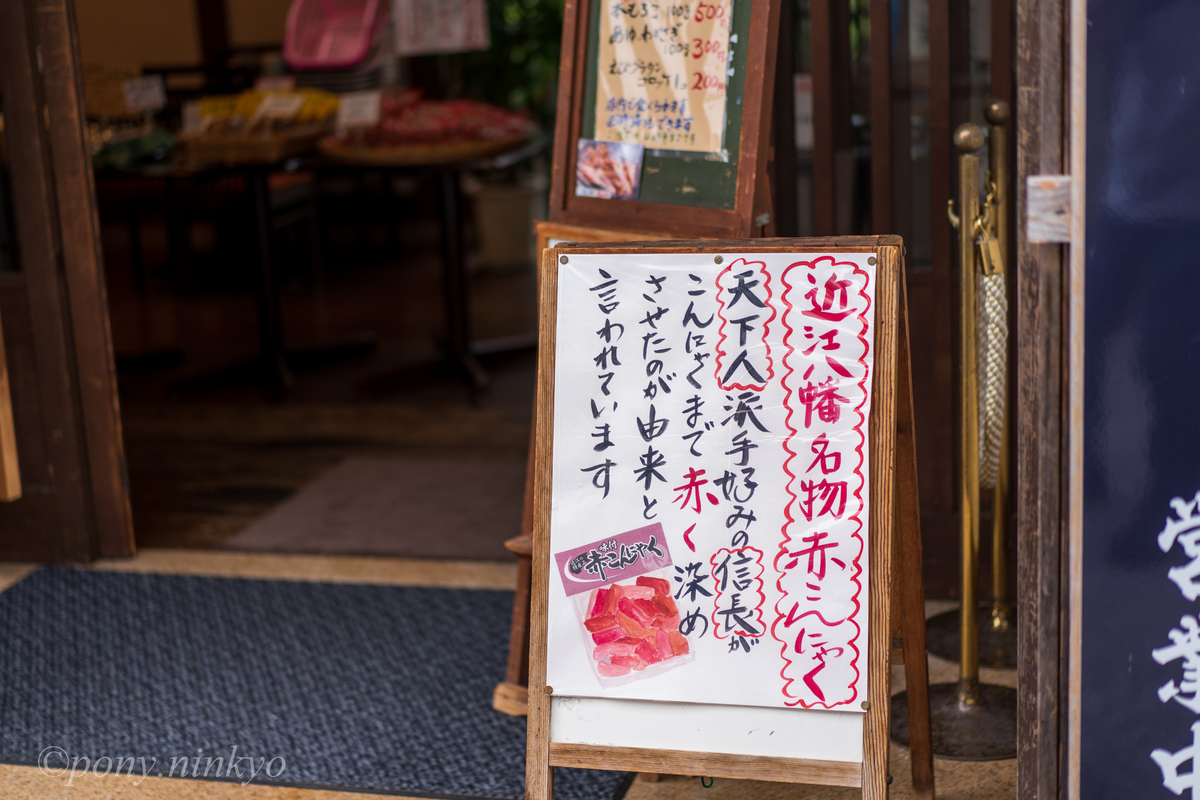 近江八幡名物赤こんにゃく
天下人派手好みの信長が
こんにゃくまで赤く染め
させたのが由来と
言われています
味付
赤こんにゃく
100g 500
100g 300円
コロッケ 1コ 200円
©pony.ninkyo